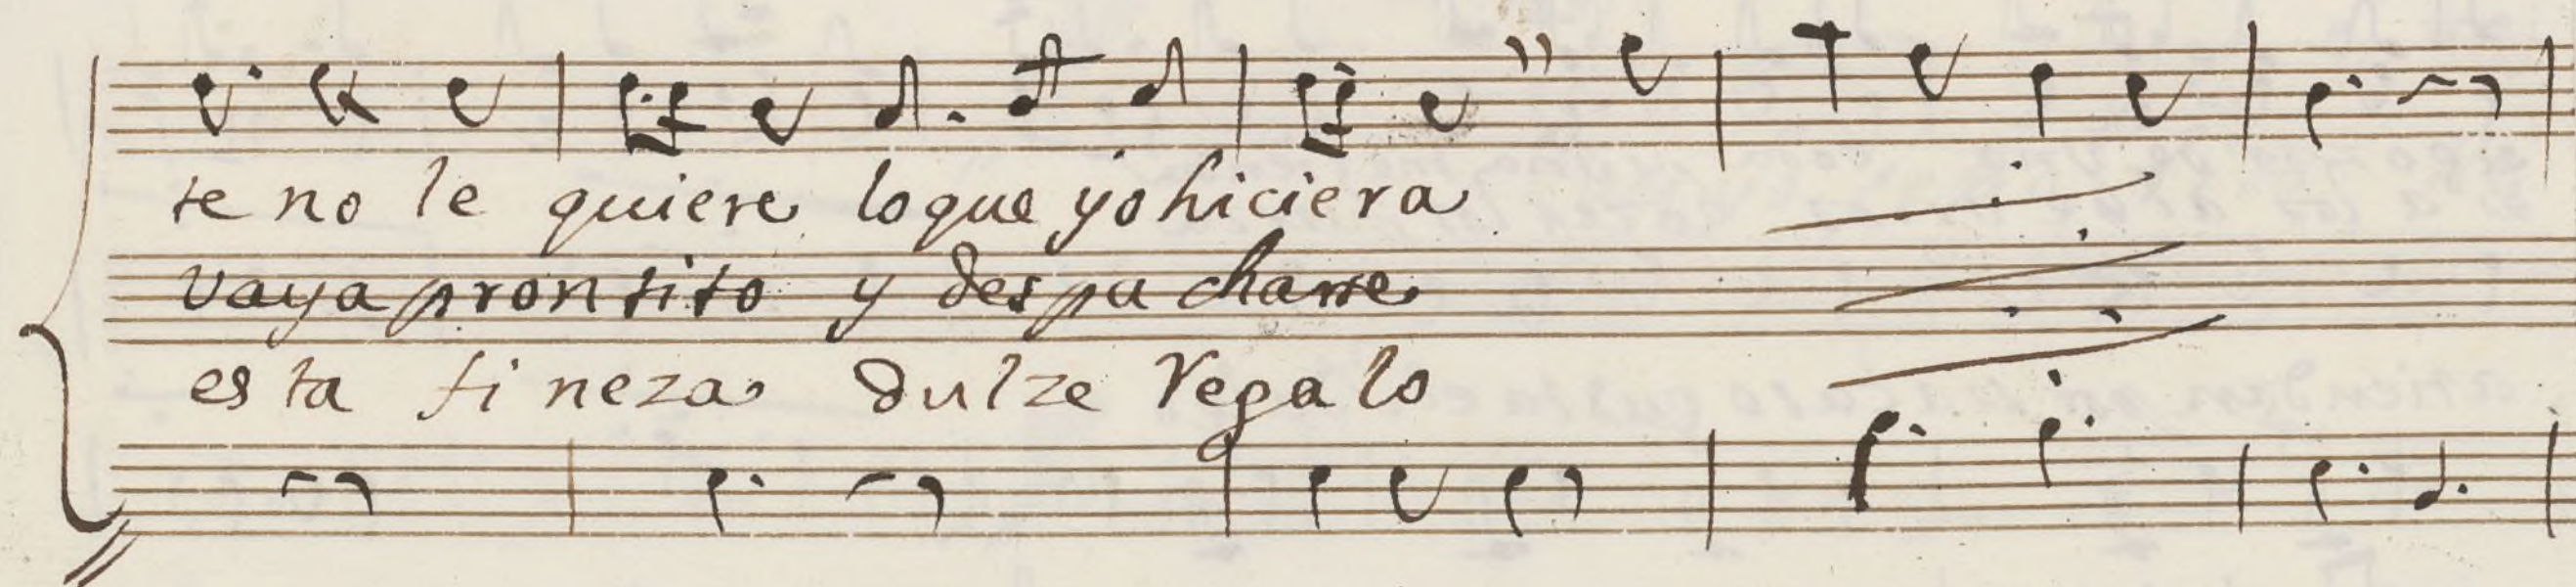 te no le quiere lo que yo hiciera
vaya prontito y despa charme
es ta fi neza dulze Regalo